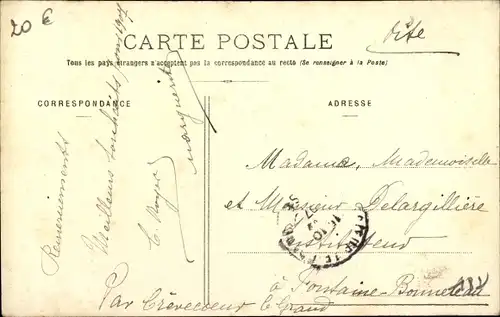 20 €
CARTE POSTALE
Tous les pays étrangers n'acceptent pas la correspondance au recto (Se renseigner à la Poste)
CORRESPONDANCE
Remerciements
Meilleurs souhaits pour 1907
ADRESSE
Madame, Mademoiselle
et Monsieur Delargillière
Instituteur
à Fontaine-Bonneleau
Par Crèvecoeur le Grand